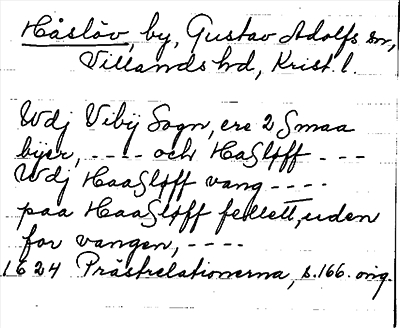 Håslöv, by, Gustav Adolfs sn,
Villands hd, Krist. l.
Wdj Vibÿ Sogn, ere 2 Smaa
byer, ---- och HaSlöff ---
Wdj HaaSlöff vang ----
paa HaaSlöff fellett, uden
for vangen, ----
1624 Prästrelationerna, s. 166. orig.